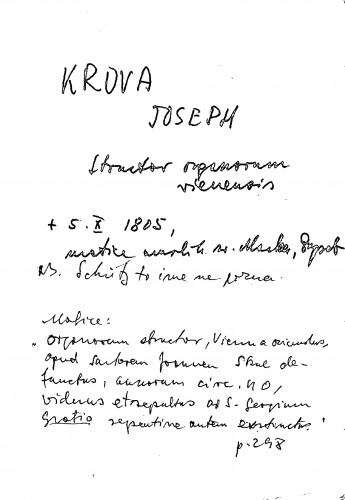 KROVA
JOSEPH
Structor organorum
vienensis
+ 5. X 1805,
matice umrlih sv. Marka,
NB. Schütz to ime ne pozna.
Matice:
„organorum structor, Vienna oriundus,
apud sartorem Joannem Skul de-
functus, annorum circ. 40,
viduus et sepultus ad S. Georgium
gratio repentine autem extinctus"
p. 298